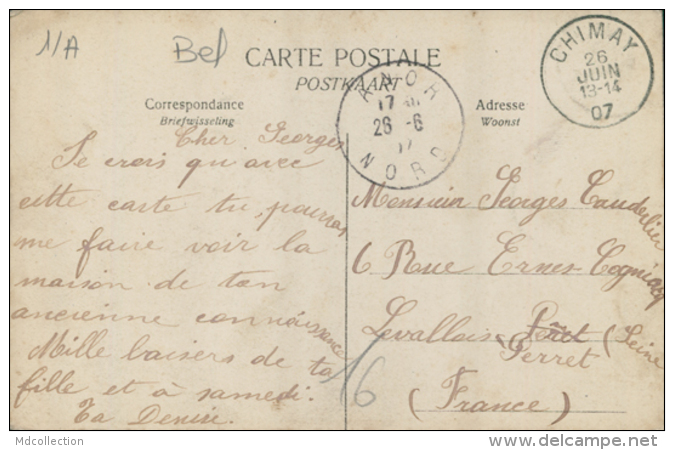 1/A
Bel
CARTE POSTALE
POSTKAART
Correspondance
Briefwisseling
Adresse
Woonst
CHIMAY
26
JUIN
13-14
07
ANOR
17
26 -6
NORD
Cher Georges
Je crois qu'avec
cette carte tu pourras
me faire voir la
maison de ton
ancienne connaissance
Mille baisers de ta
fille et à samedi.
Ta
Monsieur Georges Cauderlier
6 Rue Ernest Cognacq
Levallois Perret (Seine
Perret
(France)
16
Mdcollection
www.delcampe.net